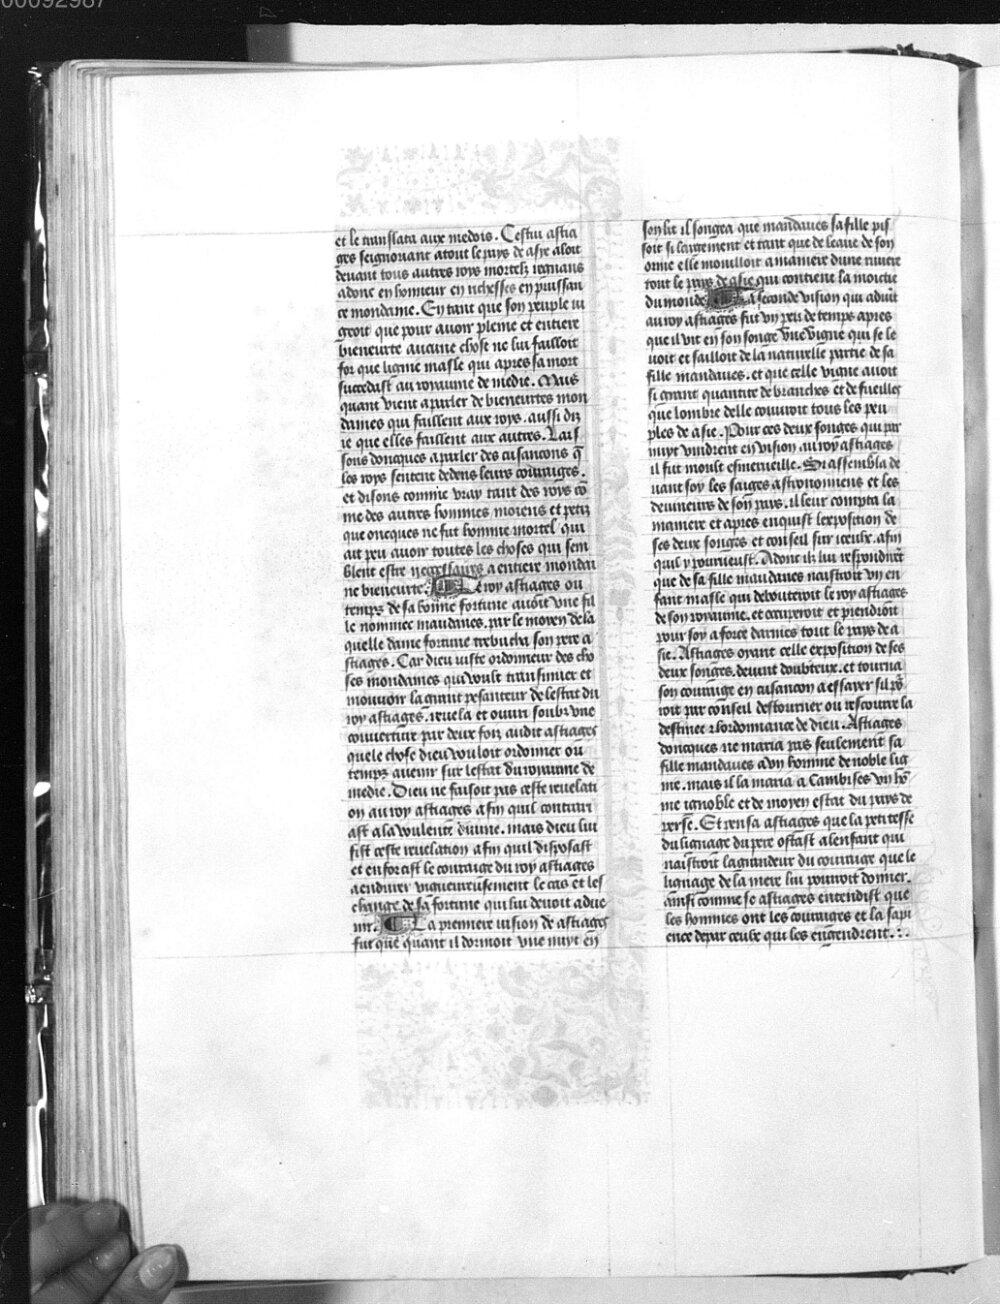 00092987
et le translata aux medois. Cestui astia
ges seignoriant a tout le pays de asye aloit
deuant tous autres roys mortelz regnans
adonc en honneur en richesses en puissan
ce mondaine. En tant que son peuple iu
geoit que pour auoir pleine et entiere
bieneurte aucune chose ne lui failloit
for que ligne masle qui apres sa mort
succedast au royaume de medie. Mais
quant vient a parler de bieneurtes mon
daines qui faillent aux roys. aussi diz
ie que elles faillent aux autres. Lais
sons doncques a parler des cusancons q̃
les roys sentent dedens leurs couraiges.
et disons comme vray tant des roys cõ
me des autres hommes moiens et petiz
que oncques ne fut homme mortel qui
ait peu auoir toutes les choses qui sem
blent estre necessaires a entiere mondai
ne bieneurte. Le roy astiages ou
temps de sa bonne fortune auoit vne fil
le nommee mandanes. par le moyen de la
quelle dame fortune trebucha son pere a
stiages. Car dieu iuste ordonneur des cho
ses mondaines qui voult transmuer et
mouuoir la grant pesanteur de lestat du
roy astiages. reuela et ouuri soubz vne
couuerture par deux foiz audit astiages
quele chose dieu vouloit ordonner ou
temps auenir sur lestat du royaume de
medie. Dieu ne faisoit pas ceste reuelati
on au roy astiages afin quil contrari
ast a la voulente diuine. mais dieu lui
fist ceste reuelation afin quil disposast
et enforcast le couraige du roy astiages
a endurer vigueureusement le cas et les
change de sa fortune qui lui deuoit adue
nir. La premiere vision de astiages
fut que quant il dormoit vne nuyt en
son lit il songea que mandanes sa fille pis
soit si largement et tant que de leaue de son
orine elle mouilloit a maniere dune riuiere
tout le pays de asie qui contient la moictie
du monde. La seconde vision qui aduint
au roy astiages fut vn peu de temps apres
que il vit en son songe vne vigne qui se le
uoit et sailloit de la naturelle partie de sa
fille mandanes. et que celle vigne auoit
si grant quantite de branches et de fueilles
que lombre delle couuroit tous les peu
ples de asie. Pour ces deux songes qui par
nuyt vindrent en vision au roy astiages
il fut moult esmerueille. Si assembla de
uant soy les saiges astronomiens et les
deuineurs de son pays. il leur compta la
maniere et apres enquist lexposition de
ses deux songes et conseil sur iceulx. afin
quil y pourueust. Adonc ilz lui respondirẽt
que de sa fille mandanes naistroit vn en
fant masle qui debouteroit le roy astiages
de son royaume. et occuperoit et prendroit
pour soy a force darmes tout le pays de a
sie. Astiages oyant celle exposition de ses
deux songes. deuint doubteux. et tourna
son couraige en cusancon a essayer sil po
roit par conseil destourner ou rescourre la
destinee z lordonnance de dieu. Astiages
doncques ne maria pas seulement sa
fille mandanes a vn homme de noble lig
ne. mais il la maria a Cambises vn hõ
me ignoble et de moyen estat du pays de
perse. Et pensa astiages que la petitesse
du lignage du pere ostast a lenfant qui
naistroit la grandeur du couraige que le
lignage de la mere lui pourroit donner.
ainsi comme se astiages entendist que
les hommes ont les couraiges et la sapi
ence depar ceulx qui les engendrent.